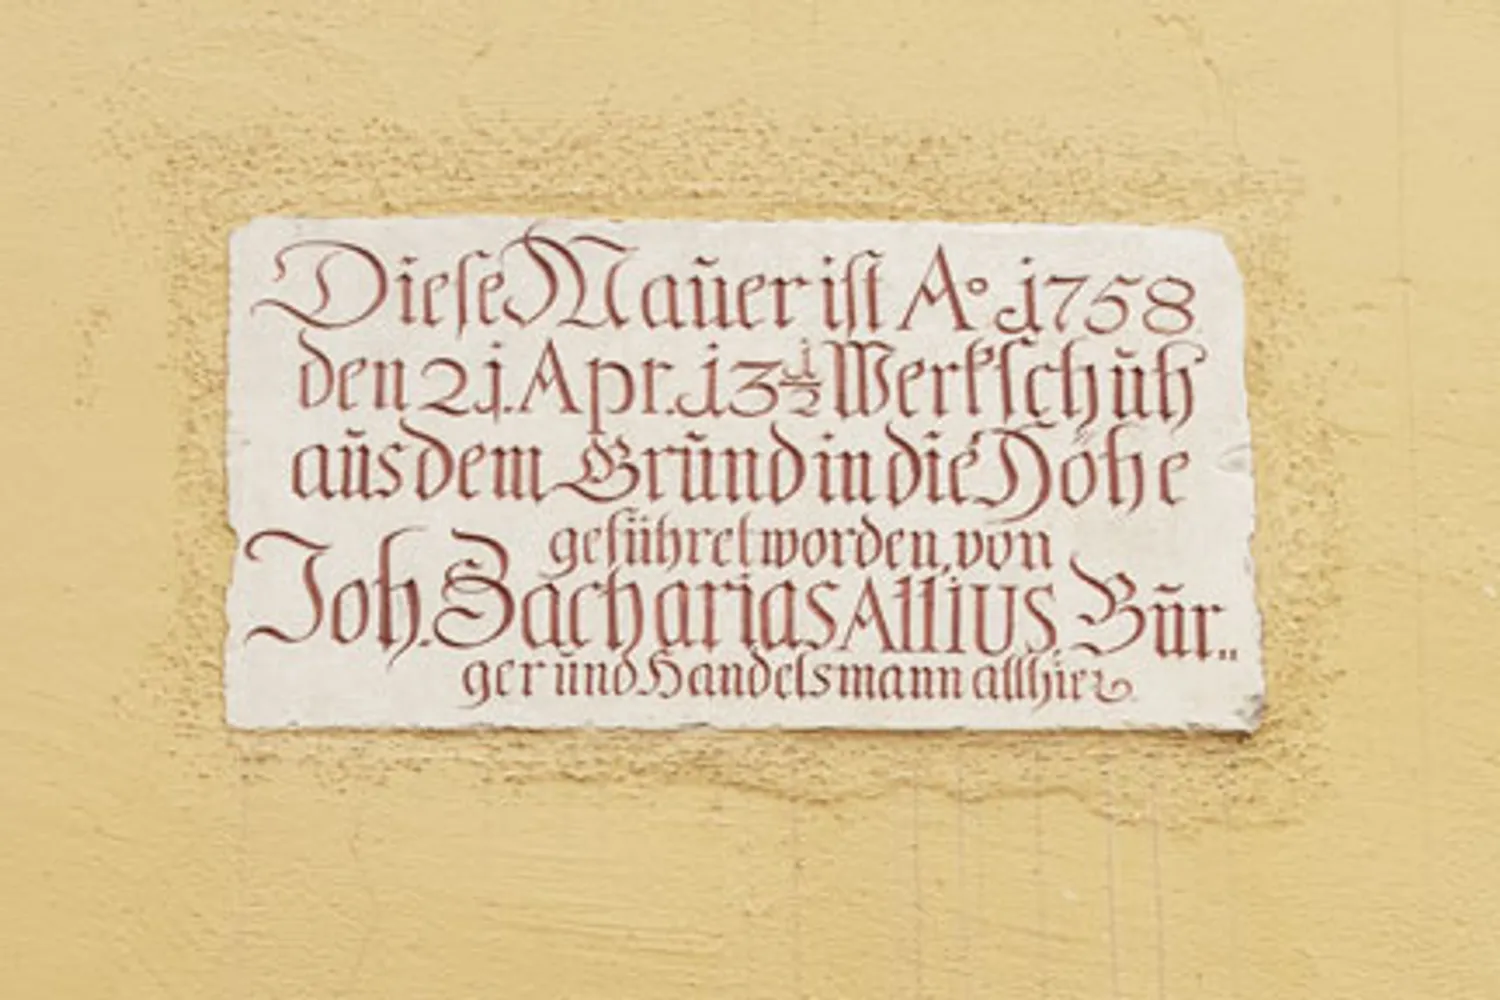 Dieſe Maŭer iſt Ao. 1758
den 21. Apr. 13½ Werkſchŭh
aŭs dem Grŭnd in die Höhe
geführet worden, von
Joh. Zacharias Allius. Bŭr⸗
ger ŭnd Handelsmann allhier